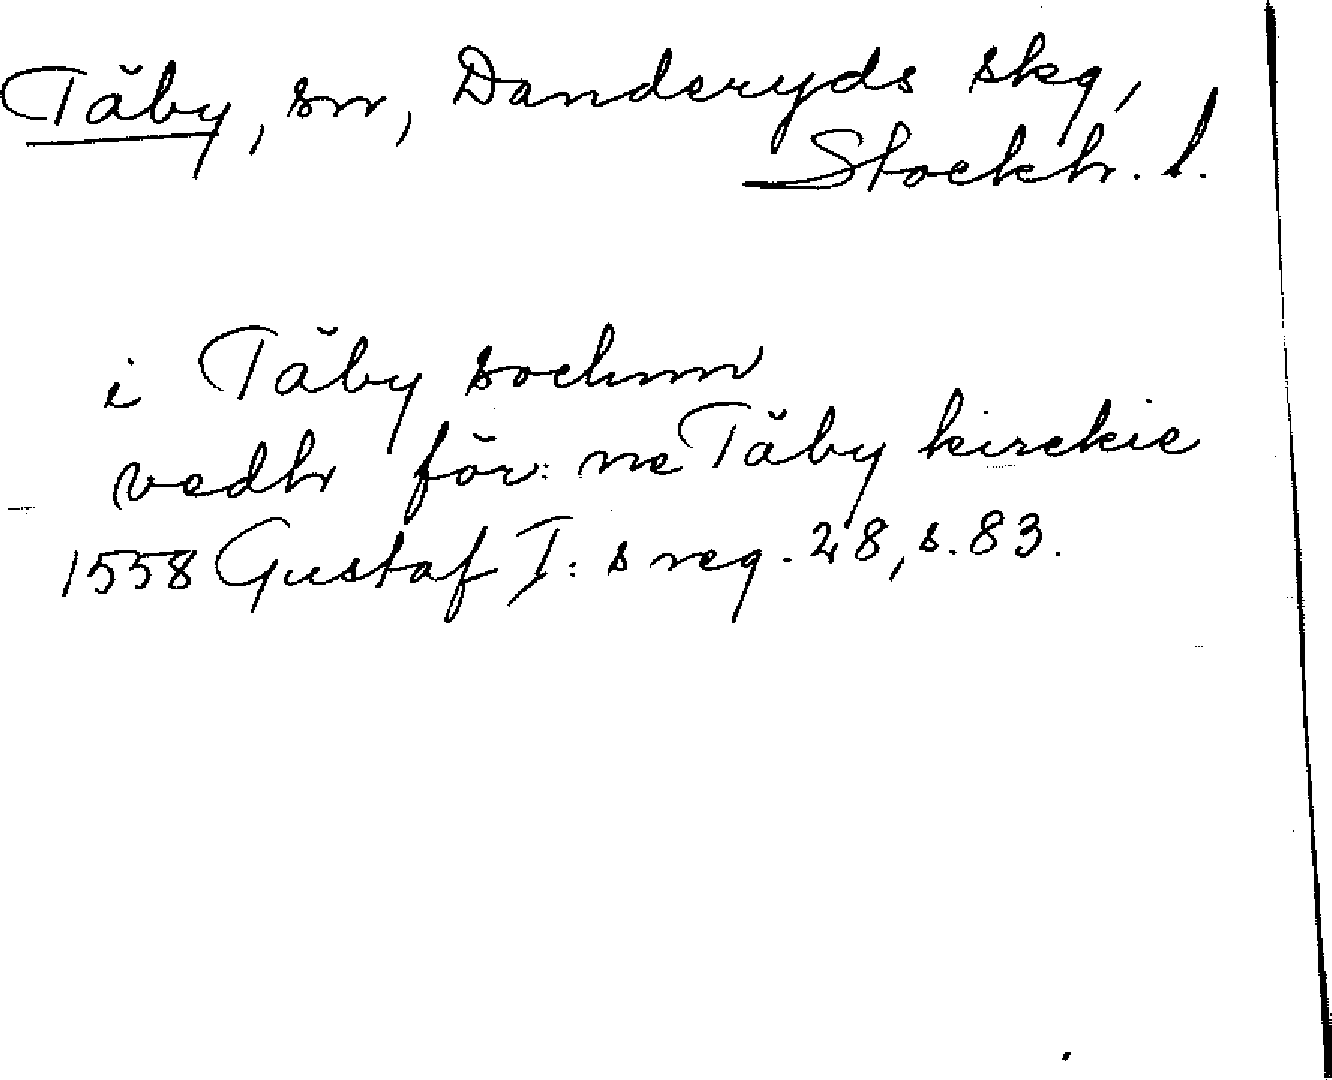 Täby, sn, Danderyds skg,
Stockh. l.
i Täby sochnn
vedh för: ne Täby kirckie
1558 Gustaf I: s reg. 28, s. 83.